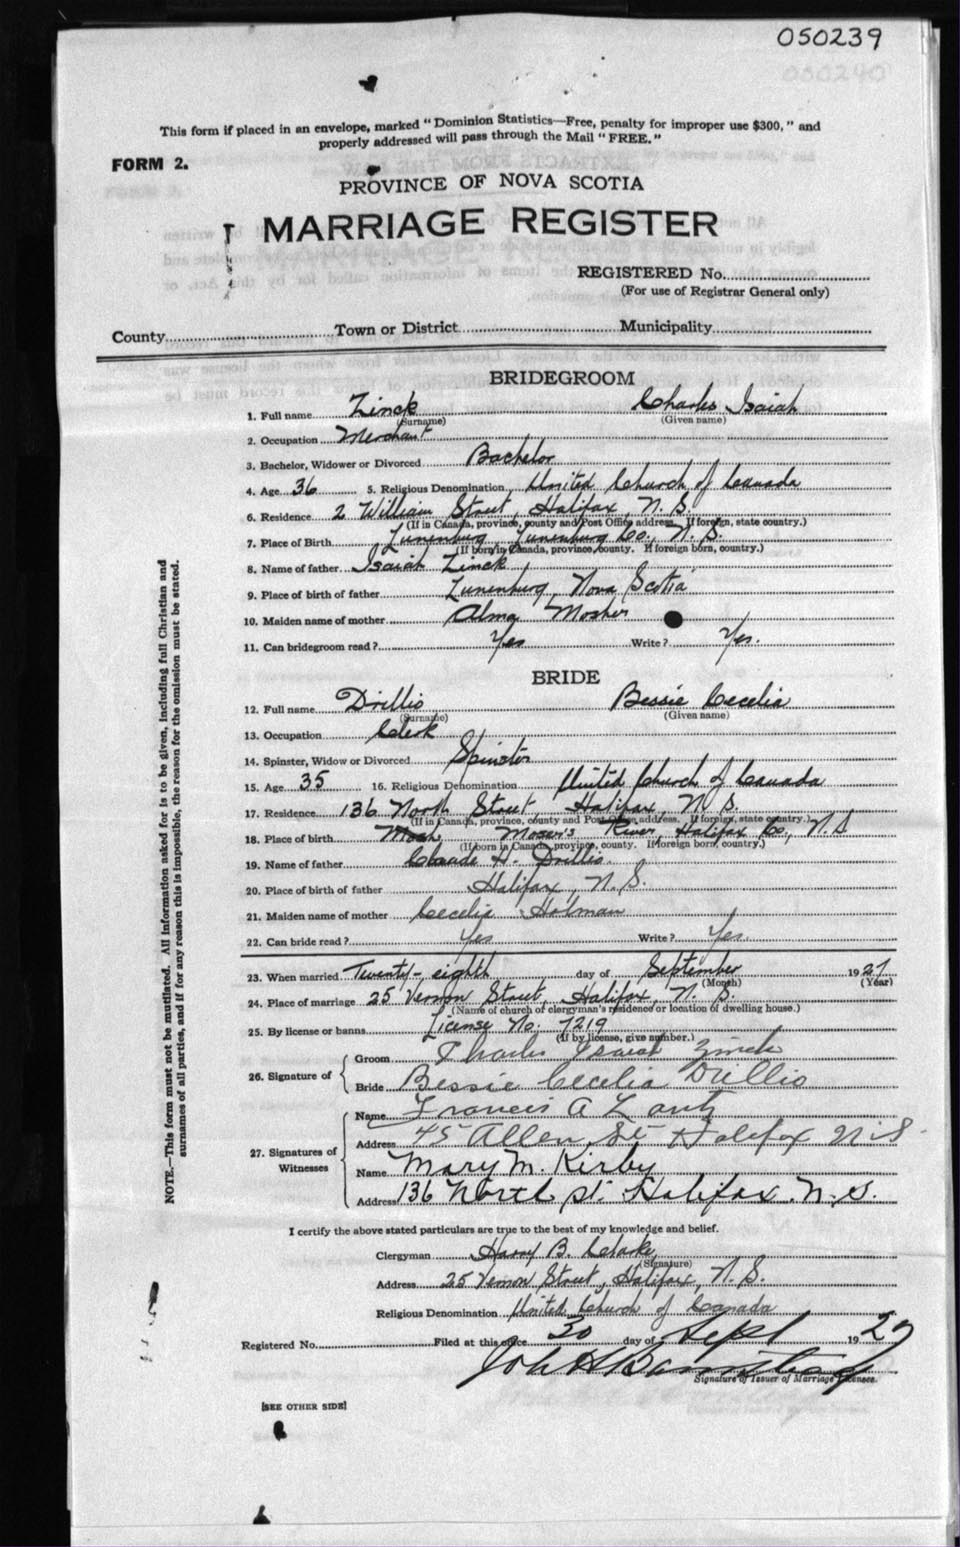 050239
000240
This form if placed in an envelope, marked "Dominion Statistics—Free, penalty for improper use $300," and
properly addressed will pass through the Mail "FREE."
FORM 2.
PROVINCE OF NOVA SCOTIA
MARRIAGE REGISTER
REGISTERED No.
(For use of Registrar General only)
County Town or District Municipality
BRIDEGROOM
1. Full name Zinck Charles Isaiah
(Surname) (Given name)
2. Occupation Merchant
3. Bachelor, Widower or Divorced Bachelor
4. Age 36 5. Religious Denomination United Church of Canada
6. Residence 2 William Street, Halifax, N.S.
(If in Canada, province, county and Post Office address. If foreign, state country.)
7. Place of Birth Lunenburg, Lunenburg Co., N.S.
(If born in Canada, province, county. If foreign born, country.)
8. Name of father Isaiah Zinck
9. Place of birth of father Lunenburg, Nova Scotia
10. Maiden name of mother Alma Mosher
11. Can bridegroom read? Yes Write? Yes.
BRIDE
12. Full name Drillio Bessie Cecelia
(Surname) (Given name)
13. Occupation Clerk
14. Spinster, Widow or Divorced Spinster
15. Age 35 16. Religious Denomination United Church of Canada
17. Residence 136 North Street, Halifax, N.S.
(If in Canada, province, county and Post Office address. If foreign, state country.)
18. Place of birth Mosh Moser's River, Halifax Co., N.S
(If born in Canada, province, county. If foreign born, country.)
19. Name of father Claude H. Drillio.
20. Place of birth of father Halifax, N.S.
21. Maiden name of mother Cecelia Holman
22. Can bride read? Yes Write? Yes.
23. When married Twenty-eighth day of September 1927
(Month) (Year)
24. Place of marriage 25 Vernon Street, Halifax, N.S.
(Name of church of clergyman's residence or location of dwelling house.)
25. By license or banns License No. 7219
(If by license, give number.)
26. Signature of Groom Charles Isaiah Zinck
Bride Bessie Cecelia Drillio
27. Signatures of Witnesses
Name Francis A Lantz
Address 45 Allen St Halifax N.S.
Name Mary M. Kirby
Address 136 North St. Halifax. N.S.
I certify the above stated particulars are true to the best of my knowledge and belief.
Clergyman Harry B. Clarke,
(Signature)
Address 25 Vernon Street, Halifax, N.S.
Religious Denomination United Church of Canada
Registered No. Filed at this office 30 day of Sept 1927
Signature of Issuer of Marriage Licenses.
[SEE OTHER SIDE]
NOTE.—This form must not be mutilated. All information asked for is to be given, including full Christian and
surnames of all parties, and if for any reason this is impossible, the reason for the omission must be stated.